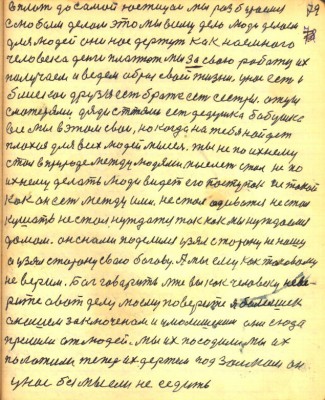 вплот до самой ностоящи мы разбираимся 79
с любым делом это мы всему дело люди делаем
для людей они нас держут как наемного
человека денги платют мы за свою работу их
получаем и ведем образ своей жизни, унас есть
близкие друзья ест братя сест сестры. отцы
сматерями дяди стетями ест дедушка бабушка
все мы вэтом свои, но когда на тебя найдет
плохая для всех людей мысля. ты не по ихнему
стал вприроде между людями, мыслит стал не по
ихнему делать люди видет его поступок не такой
как он ест между ими, не стал одеватся не стал
кушать не стал нуждатся так как мы нуждаемся
домом. он с нами поделился узял сторону не нашу
а узял сторону свою богову. А мы ему как таковому
не верим. Благоварить мне вы как человеку неве-
рите а вот делу моему поверите я
они заключеном и умолишеным они сюда
пришли от людей. Мы их посодили мы их
положили тепер их держим под замком он
у нас бы мысли не седить